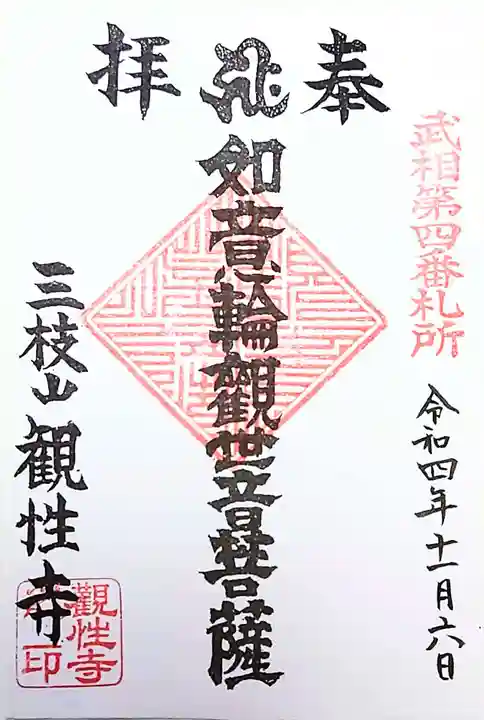 奉拝
武相第四番札所
令和四年十一月六日
如意輪觀世音菩薩
三枝山観性寺
觀性寺
印